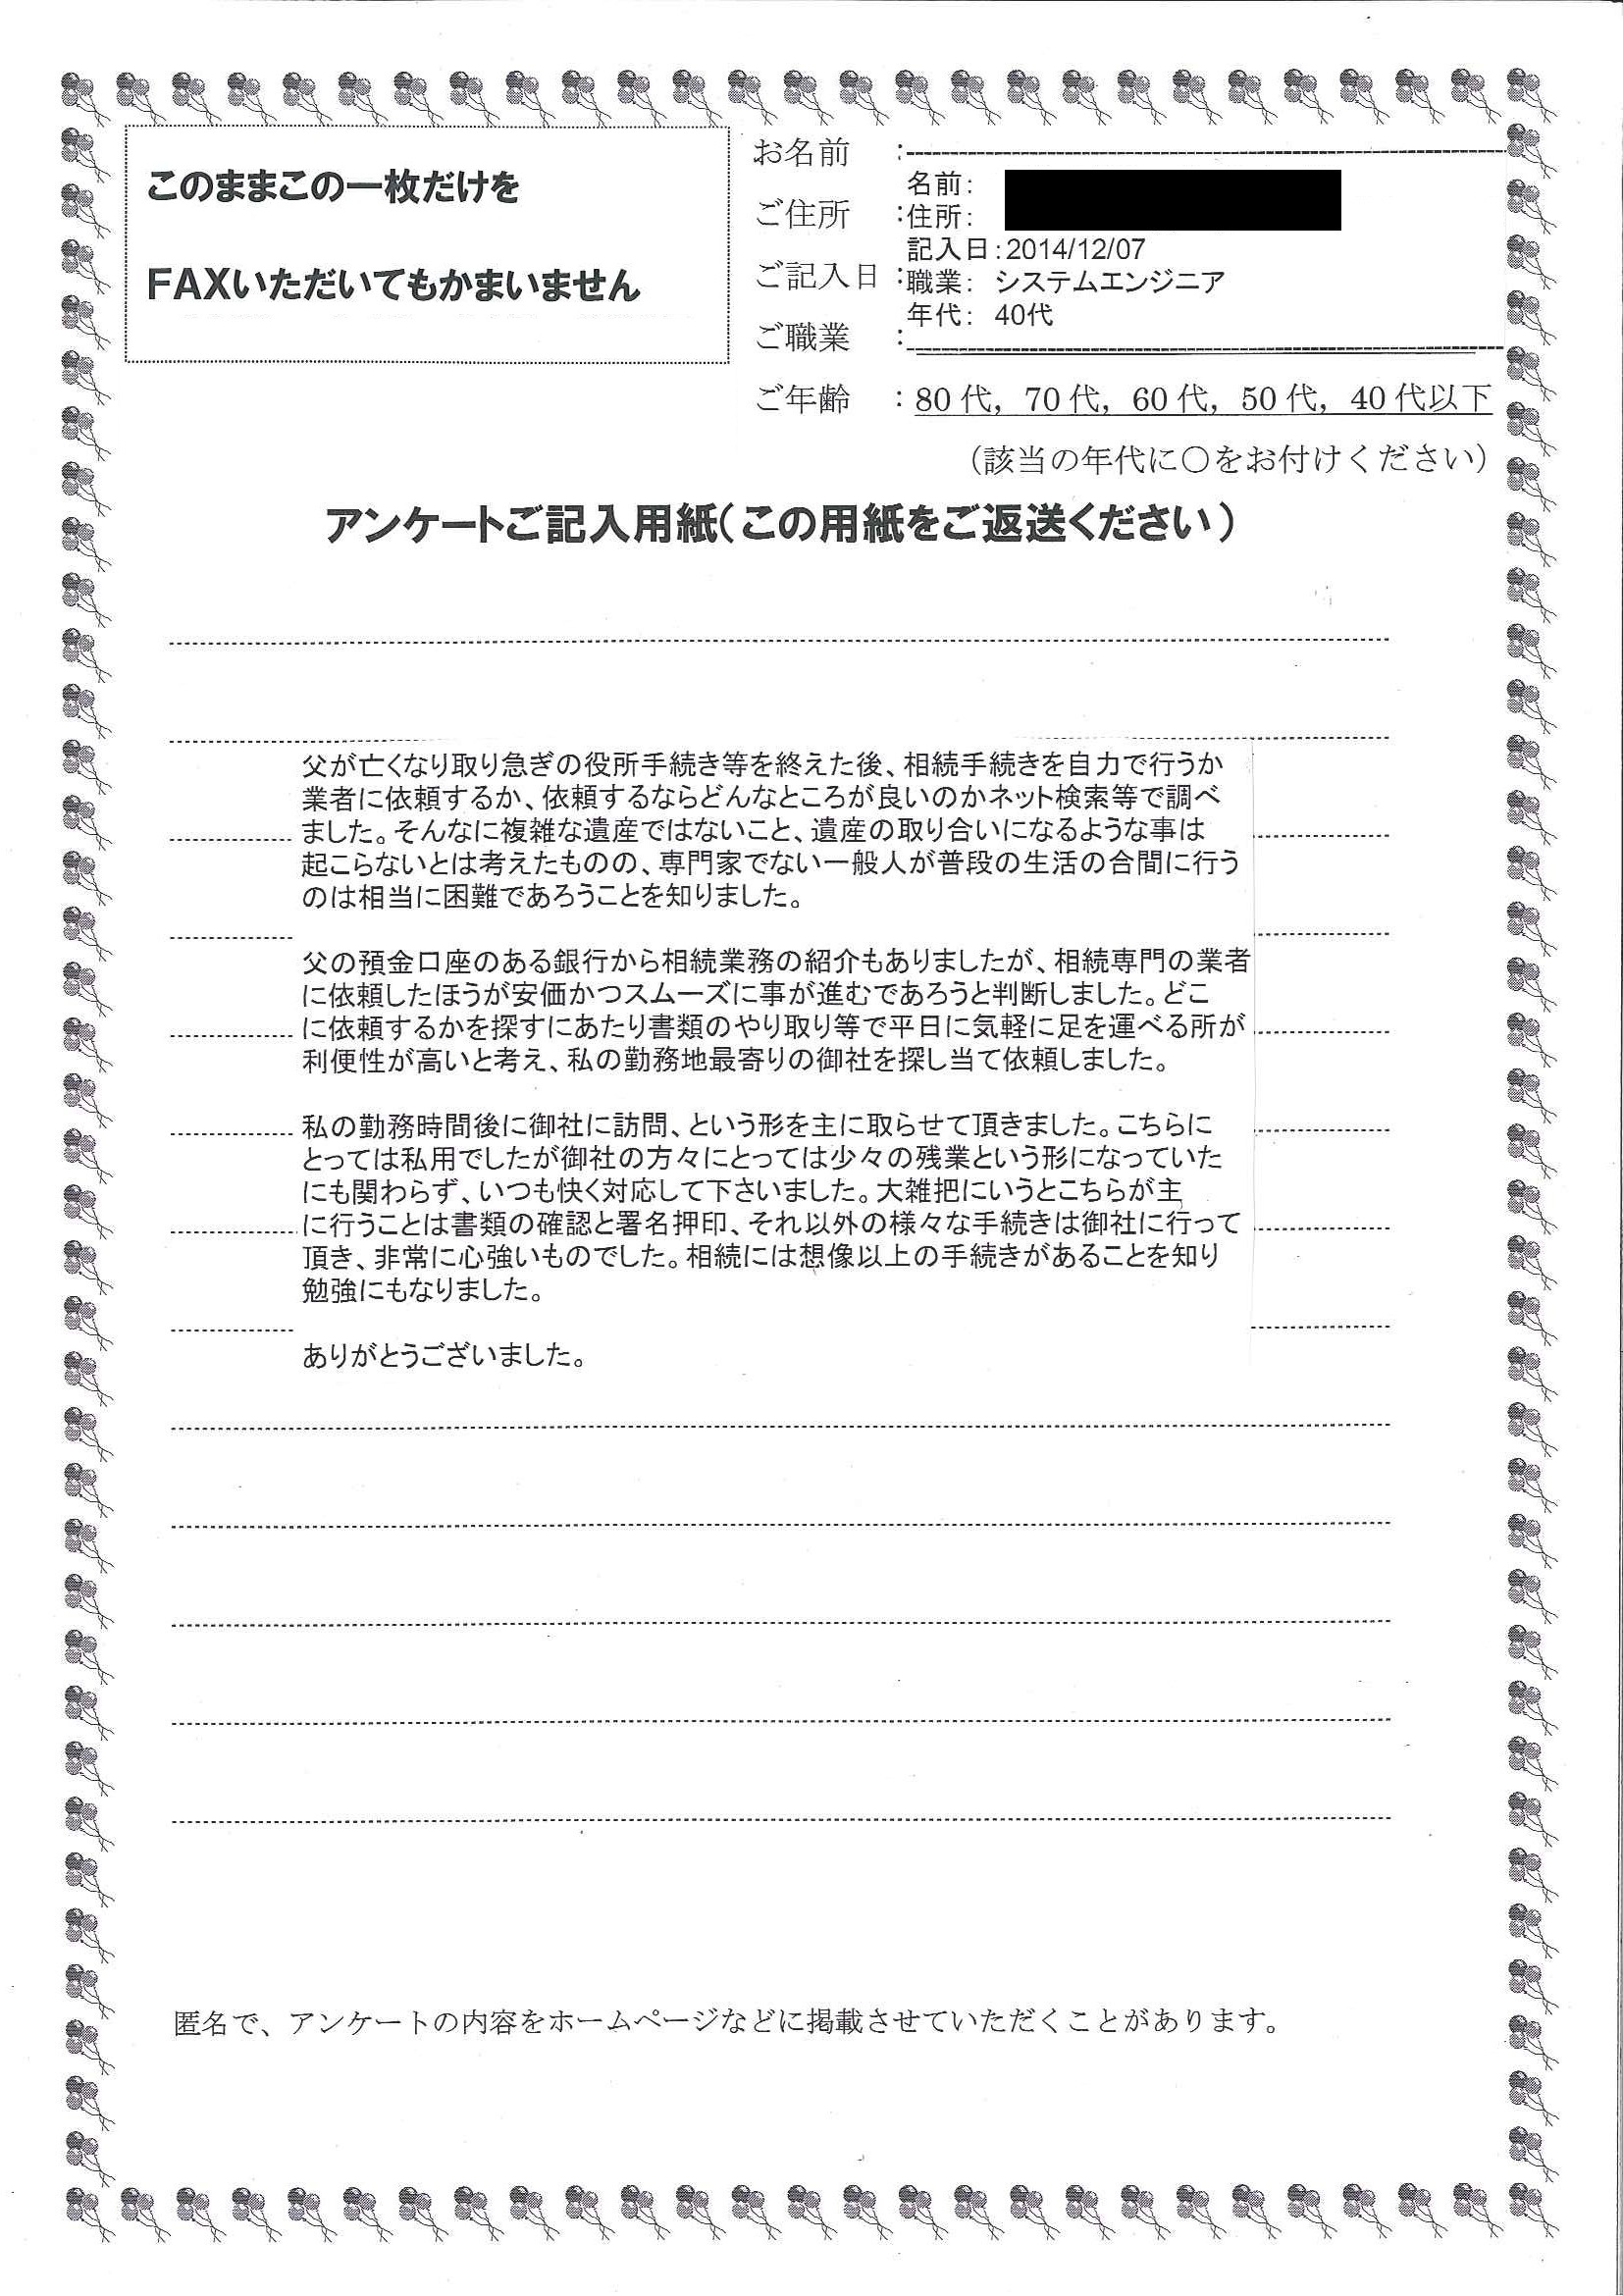 このままこの一枚だけを
FAXいただいてもかまいません
お名前 :
名前:
ご住所 :住所:
記入日:2014/12/07
ご記入日:職業: システムエンジニア
年代: 40代
ご職業 :
ご年齢 :80代, 70代, 60代, 50代, 40代以下
（該当の年代に〇をお付けください）
アンケートご記入用紙（この用紙をご返送ください）
父が亡くなり取り急ぎの役所手続き等を終えた後、相続手続きを自力で行うか
業者に依頼するか、依頼するならどんなところが良いのかネット検索等で調べ
ました。そんなに複雑な遺産ではないこと、遺産の取り合いになるような事は
起こらないとは考えたものの、専門家でない一般人が普段の生活の合間に行う
のは相当に困難であろうことを知りました。
父の預金口座のある銀行から相続業務の紹介もありましたが、相続専門の業者
に依頼したほうが安価かつスムーズに事が進むであろうと判断しました。どこ
に依頼するかを探すにあたり書類のやり取り等で平日に気軽に足を運べる所が
利便性が高いと考え、私の勤務地最寄りの御社を探し当て依頼しました。
私の勤務時間後に御社に訪問、という形を主に取らせて頂きました。こちらに
とっては私用でしたが御社の方々にとっては少々の残業という形になっていた
にも関わらず、いつも快く対応して下さいました。大雑把にいうとこちらが主
に行うことは書類の確認と署名押印、それ以外の様々な手続きは御社に行って
頂き、非常に心強いものでした。相続には想像以上の手続きがあることを知り
勉強にもなりました。
ありがとうございました。
匿名で、アンケートの内容をホームページなどに掲載させていただくことがあります。